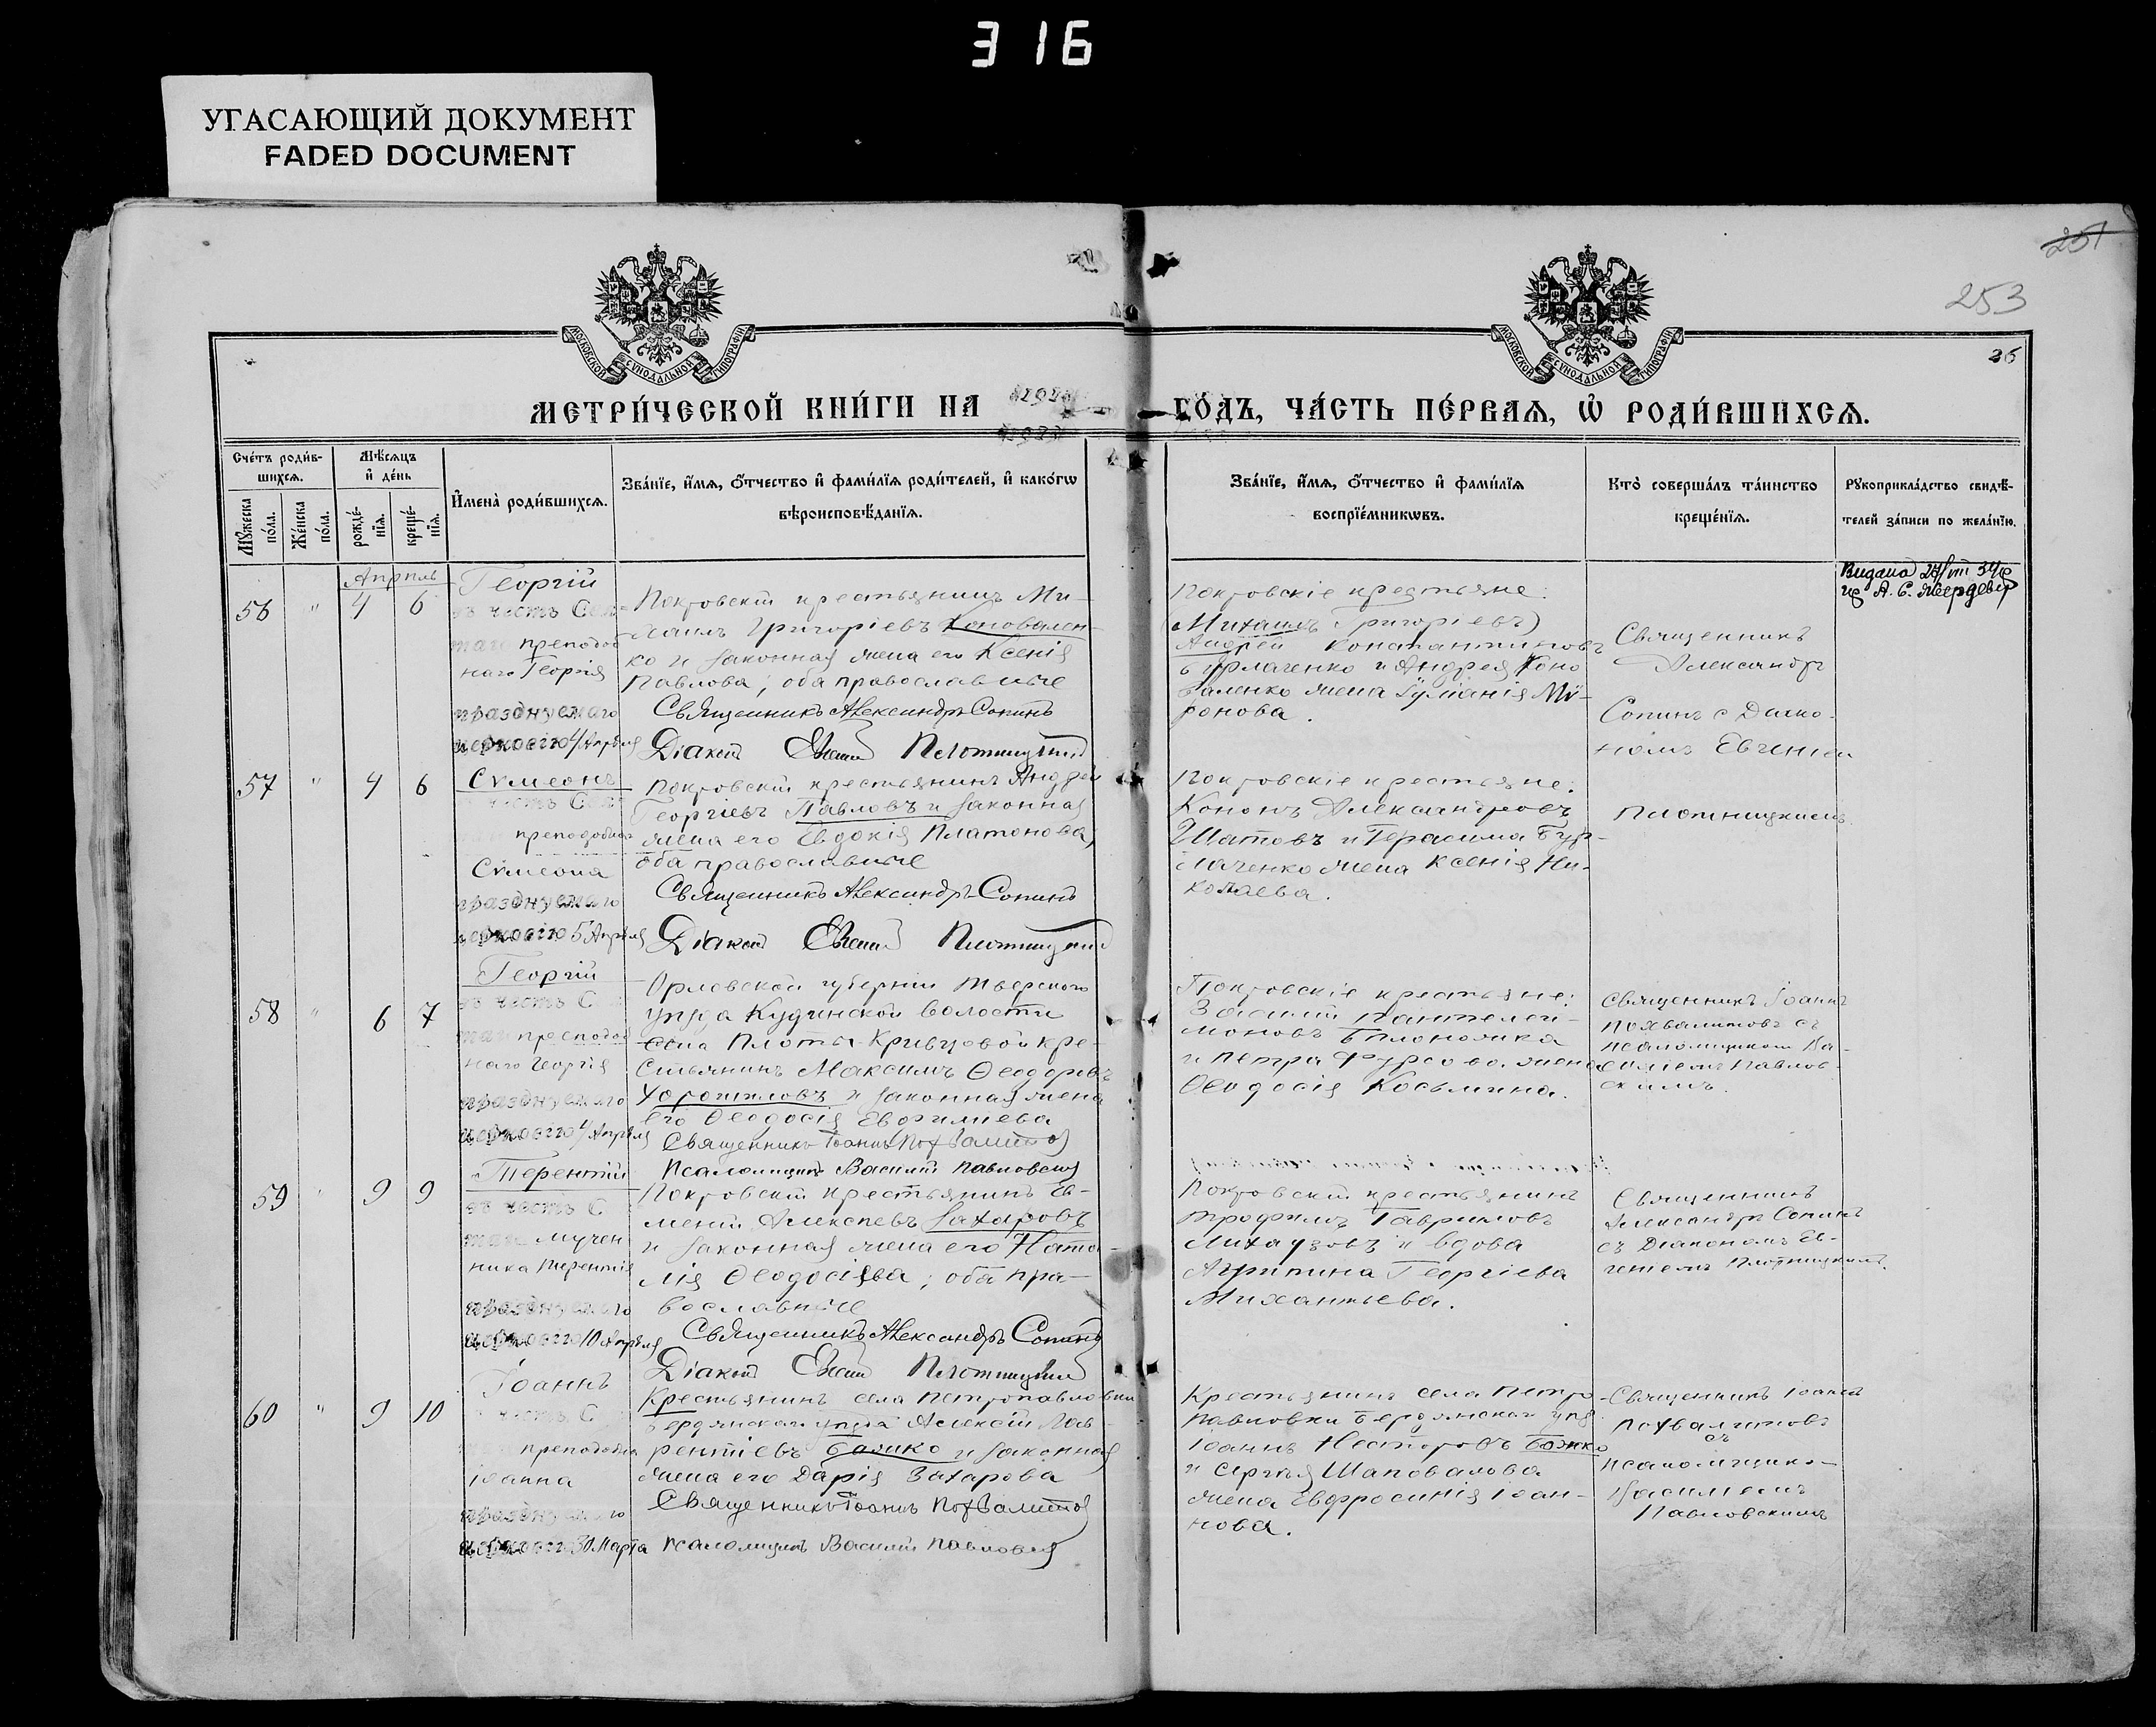 316
УГАСАЮЩИЙ ДОКУМЕНТ
FADED DOCUMENT
251
253
МОСКОВСКОЙ СѴНОДАЛЬНОЙ ТИПОГРАФІИ
МОСКОВСКОЙ СѴНОДАЛЬНОЙ ТИПОГРАФІИ
МЕТРИ́ЧЕСКОЙ КНИ́ГИ НА
ГО́ДЪ, ЧА́СТЬ ПЕ́РВАѦ, Ѡ РОДИ́ВШИХСѦ.
Сче́тъ роди́в-
шихсѧ.
Мꙋ́жеска по́ла.
Же́нска по́ла.
Мѣ́сѧцъ
и҆ де́нь
рожде́-
нїѧ.
креще́-
нїѧ.
И҆мена̀ роди́вшихсѧ.
Зва́нїе, и҆́мѧ, ѻ҆́тчество и҆ фами́лїѧ роди́телей, и҆ како́гѡ
вѣроисповѣ́данїѧ.
Зва́нїе, и҆́мѧ, ѻ҆́тчество и҆ фами́лїѧ
воспрїе́мникѡвъ.
Кто̀ соверша́лъ та́инство
креще́нїѧ.
Рꙋкоприкла́дство свидѣ́-
телей за́писи по жела́нїю.
Апрѣль
56 " 4 6
Георгій
въ честь Свя-
таго преподоб
наго Георгія
празднуемаго
церковію 4 Апрѣля
Покровскій крестьянинъ Ми-
хаилъ Григорьевъ Коновален-
ко и законная жена его Ксенія
Павлова; оба православные
Священникъ Александръ Сопинъ
Діаконъ Евгеній Плотницкій
Покровскіе крестьяне:
(Михаилъ Григоріевъ)
Андрей Константиновъ
Бурлаченко и Андрея Коно
валенко жена Іуліанія Мѵ-
ронова.
Священникъ
Александръ
Сопинъ с Діако-
номъ Евгеніем
Плотницкимъ
57 " 4 6
Сѵмеонъ
честь Свя
преподобнаг
Сѵмеона
празднуемаго
церковію 5 Апрѣля
Покровскій крестьянинъ Андрей
Георгіевъ Павловъ и законная
жена его Евдокія Платонова,
оба православные
Священникъ Александръ Сопинъ
Діаконъ Евгеній Плотницкій
Покровскіе крестьяне:
Кононъ Александровъ
Шатовъ и Герасима Бур-
лаченко жена Ксенія Ни-
колаева.
58 " 6 7
Георгій
въ честь С
таго преподоб
наго Георгія
празднуемаго
церковію 4 Апрѣля
Орловской губерніи
уѣзда волости
села Плоты Кривцовой кре-
стьянинъ Максимъ Ѳеодоровъ
и законная жена
его Ѳеодосія Евфиміева
Священникъ Іоаннъ Похвалитов
Псаломщикъ Василій Павловскій
Покровскіе крестьяне:
Василій Пантелей-
моновъ Бѣлоножка
и Петра Фурсова жена
Ѳеодосія Косьмина.
Священникъ Іоаннъ
Похвалитовъ съ
псаломщиком Ва-
силіемъ Павлов-
скимъ.
59 " 9 9
Терентій
въ честь С
таго мучен
ника Терентія
празднуемаго
церковію 10 Апрѣля
Покровскій крестьянинъ Ев-
меній Алексѣевъ Захаровъ
и законная жена его Ната-
лія Ѳеодосіева; оба пра-
вославные
Священникъ Александръ Сопинъ
Діаконъ Евгеній Плотницкій
Покровскій крестьянинъ
Трофимъ Гавриловъ
и вдова
Агрипина Георгіева
Священникъ
Александръ Сопинъ
съ Діакономъ Ев-
геніемъ Плотницкимъ.
60 " 9 10
Іоаннъ
честь С
преподобна
Іоанна
празднуемаго
церковію 30 Марта
Крестьянинъ села Петропавловки
Бердянскаго уѣзда Алексѣй Лав-
рентіевъ Божко и законная
жена его Дарія Захарова
Священникъ Іоаннъ Похвалитов
Псаломщикъ Василій Павловскій
Крестьянинъ села Петро-
павловки Бердянскаго уѣз
Іоаннъ Несторовъ Божко
и Сергѣя Шаповалова
жена Евфросинія Іоан-
нова.
Священникъ Іоаннъ
Похвалитовъ
съ
псаломщико-
Василіемъ
Павловскимъ